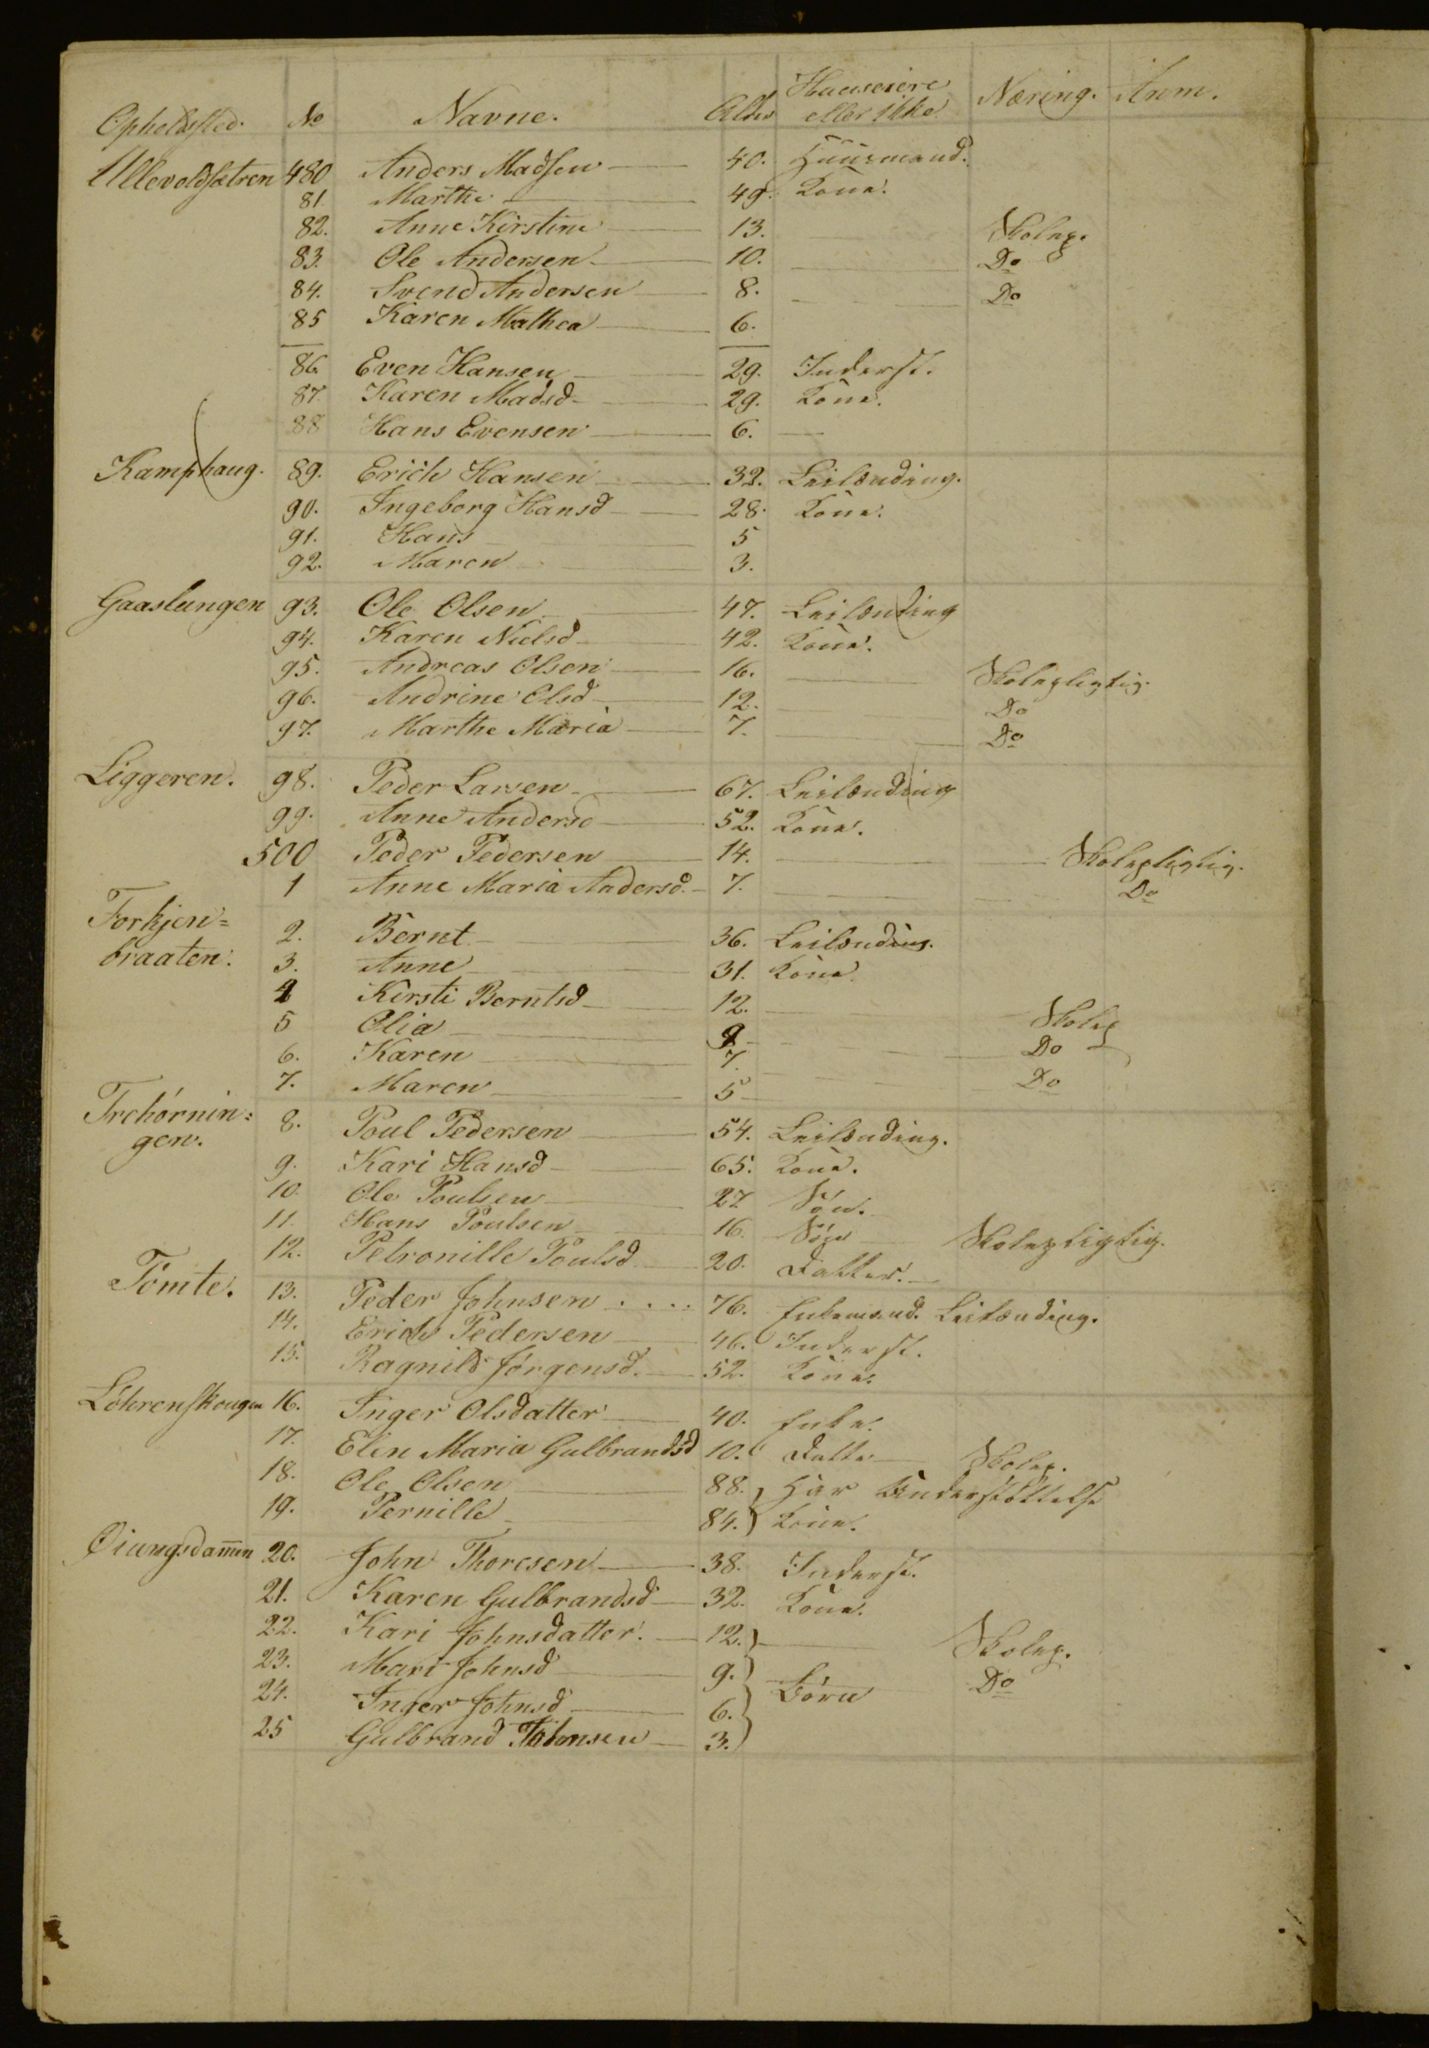 Opholdsted. No Navne. Alder Huuseiere eller ikke Næring. Anm.
Ullevoldsætren 480 Anders Madsen 40. Huusmand.
81. Marthe 49. Kone.
82. Anne Kirstine 13. Skolep.
83. Ole Andersen 10. Do
84. Svend Andersen 8. Do
85 Karen Mathea 6.
86 Even Hansen 29. Inderst.
87. Karen Madsd 29. Kone.
88 Hans Evensen 6.
Kamphaug. 89. Erich Hansen 32. Leilænding.
90. Ingeborg Hansd 28. Kone.
91. Hans 5
92. Maren 3.
Gaaslungen 93. Ole Olsen 47. Leilænding
94. Karen Nielsd 42. Kone.
95. Andreas Olsen 16. Skolepligtig.
96. Andrine Olsd 12. Do
97. Marthe Maria 7. Do
Liggeren. 98. Peder Larsen 67. Leilænding
99. Anne Andersd 52. Kone.
500 Peder Pedersen 14. Skolepligtig.
1 Anne Maria Andersd. 7. Do
Torkjen= 2. Bernt 36. Leilænding.
braaten. 3. Anne 31. Kone
4 Kirsti Berntsd 12. Skolep
5 Olia 9 Do
6. Karen 7. Do
7. Maren 5
Trehörnin= 8. Poul Pedersen 54. Leilænding.
gen. 9. Kari Hansd 65. Kone.
10. Ole Poulsen 27 Sön.
11. Hans Poulsen 16. Sön Skolepligtig.
12. Petronille Poulsd 20. Datter.
Tomte. 13. Peder Johnsen .... 76. Enkemand. Leilænding.
14. Erich Pedersen 46. Inderst.
15. Ragnild Jörgensd. 52. Kone.
Löhrenskougen 16. Inger Olsdatter 40. Enke.
17. Elen Maria Gulbrandsd 10. Datter Skolep.
18. Ole Olsen 88. Har Understöttelse
19. Pernille 84. Kone.
Öiungsdam̄en 20. John Thoresen 38. Inderst.
21. Karen Gulbrandsd 32. Kone.
22. Kari Johnsdatter. 12. Skolep.
23. Mari Johnsd 9. Börn Do
24. Inger Johnsd 6.
25 Gulbrand Johnsen 3.